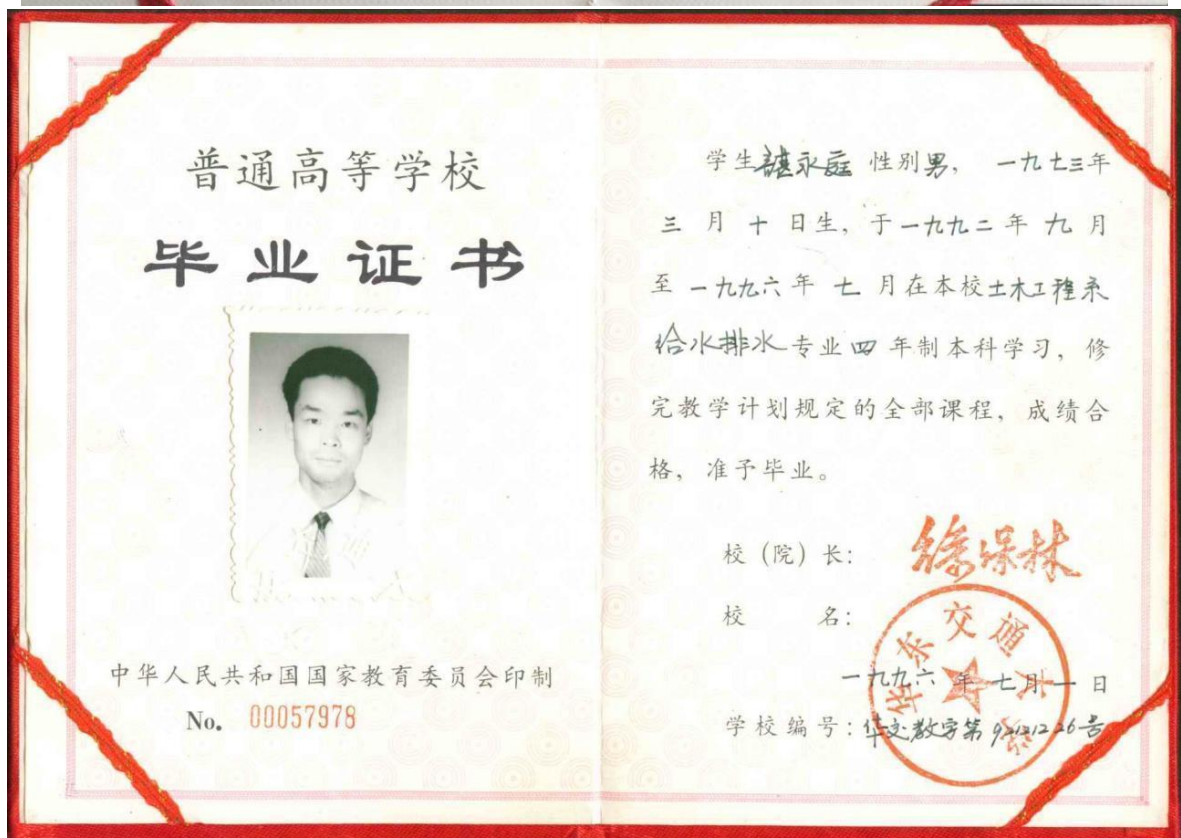 普通高等学校
毕业证书
中华人民共和国国家教育委员会印制
No. 00057978
学生永庭 性别男, 一九七三年
三月十日生, 于一九九二年九月
至一九九六年七月在本校土木工程系
给水排水专业四年制本科学习, 修
完教学计划规定的全部课程, 成绩合
格, 准予毕业。
校(院)长: 徐保林
校 名:
华东交通大学
一九九六年七月一日
学校编号: 华交教字第号